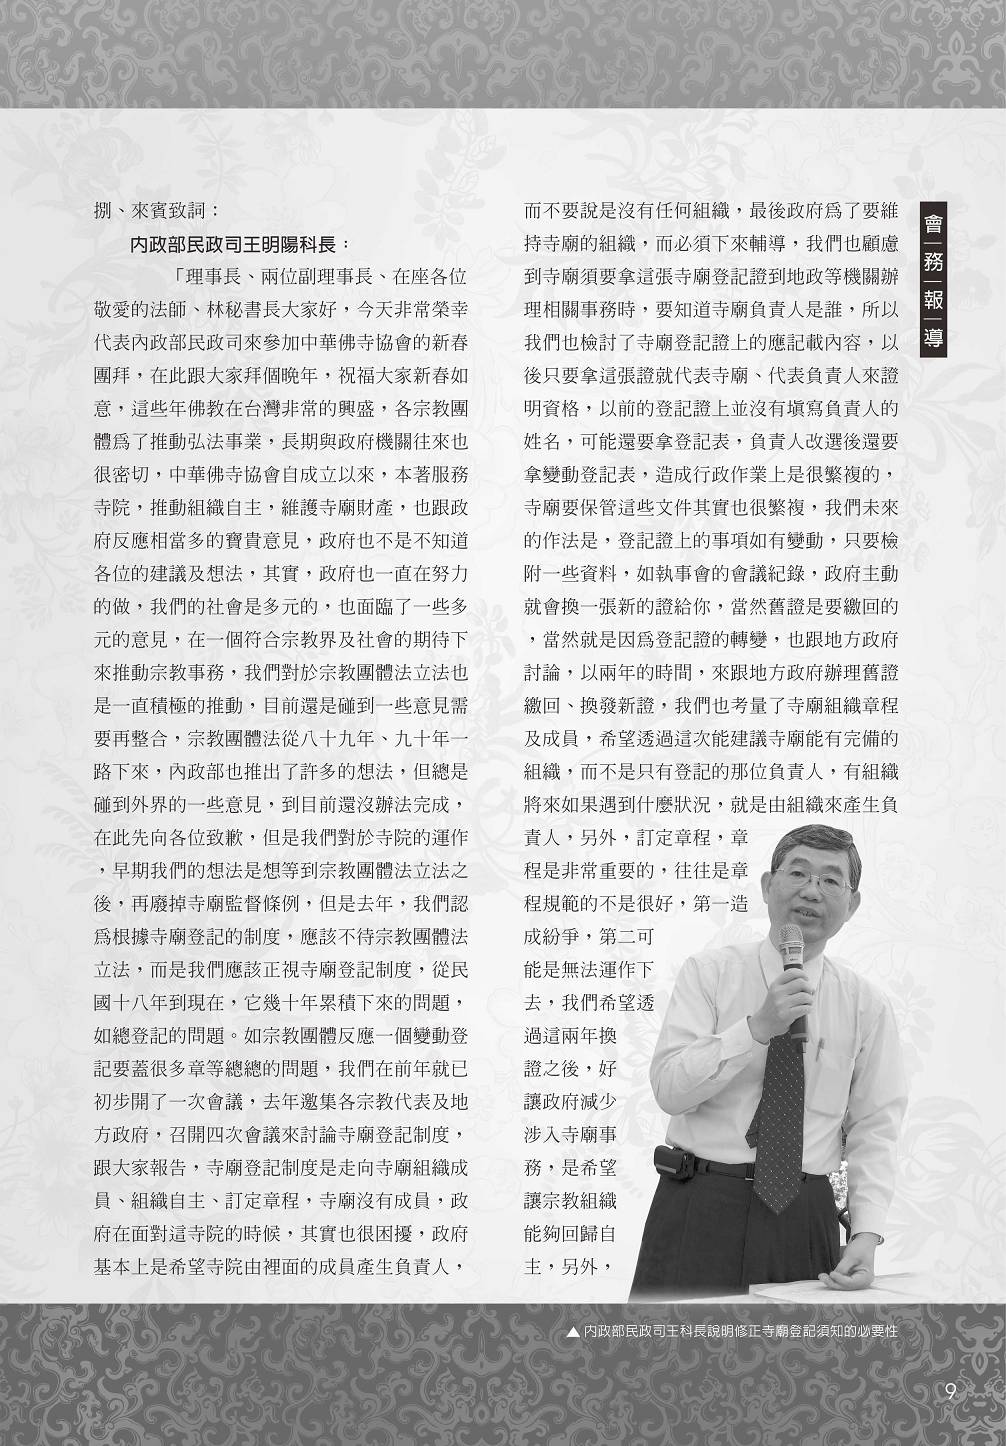 捌、來賓致詞：
內政部民政司王明陽科長：
「理事長、兩位副理事長、在座各位
敬愛的法師、林秘書長大家好，今天非常榮幸
代表內政部民政司來參加中華佛寺協會的新春
團拜，在此跟大家拜個晚年，祝福大家新春如
意，這些年佛教在台灣非常的興盛，各宗教團
體為了推動弘法事業，長期與政府機關往來也
很密切，中華佛寺協會自成立以來，本著服務
寺院，推動組織自主，維護寺廟財產，也跟政
府反應相當多的寶貴意見，政府也不是不知道
各位的建議及想法，其實，政府也一直在努力
的做，我們的社會是多元的，也面臨了一些多
元的意見，在一個符合宗教界及社會的期待下
來推動宗教事務，我們對於宗教團體法立法也
是一直積極的推動，目前還是碰到一些意見需
要再整合，宗教團體法從八十九年、九十年一
路下來，內政部也推出了許多的想法，但總是
碰到外界的一些意見，到目前還沒辦法完成，
在此先向各位致歉，但是我們對於寺院的運作
，早期我們的想法是想等到宗教團體法立法之
後，再廢掉寺廟監督條例，但是去年，我們認
為根據寺廟登記的制度，應該不待宗教團體法
立法，而是我們應該正視寺廟登記制度，從民
國十八年到現在，它幾十年累積下來的問題，
如總登記的問題。如宗教團體反應一個變動登
記要蓋很多章等總總的問題，我們在前年就已
初步開了一次會議，去年邀集各宗教代表及地
方政府，召開四次會議來討論寺廟登記制度，
跟大家報告，寺廟登記制度是走向寺廟組織成
員、組織自主、訂定章程，寺廟沒有成員，政
府在面對這寺院的時候，其實也很困擾，政府
基本上是希望寺院由裡面的成員產生負責人，
而不要說是沒有任何組織，最後政府為了要維
持寺廟的組織，而必須下來輔導，我們也顧慮
到寺廟須要拿這張寺廟登記證到地政等機關辦
理相關事務時，要知道寺廟負責人是誰，所以
我們也檢討了寺廟登記證上的應記載內容，以
後只要拿這張證就代表寺廟、代表負責人來證
明資格，以前的登記證上並沒有填寫負責人的
姓名，可能還要拿登記表，負責人改選後還要
拿變動登記表，造成行政作業上是很繁複的，
寺廟要保管這些文件其實也很繁複，我們未來
的作法是，登記證上的事項如有變動，只要檢
附一些資料，如執事會的會議紀錄，政府主動
就會換一張新的證給你，當然舊證是要繳回的
，當然就是因為登記證的轉變，也跟地方政府
討論，以兩年的時間，來跟地方政府辦理舊證
繳回、換發新證，我們也考量了寺廟組織章程
及成員，希望透過這次能建議寺廟能有完備的
組織，而不是只有登記的那位負責人，有組織
將來如果遇到什麼狀況，就是由組織來產生負
責人，另外，訂定章程，章
程是非常重要的，往往是章
程規範的不是很好，第一造
成紛爭，第二可
能是無法運作下
去，我們希望透
過這兩年換
證之後，好
讓政府減少
涉入寺廟事
務，是希望
讓宗教組織
能夠回歸自
主，另外，
會務報導
▲內政部民政司王科長說明修正寺廟登記須知的必要性
9